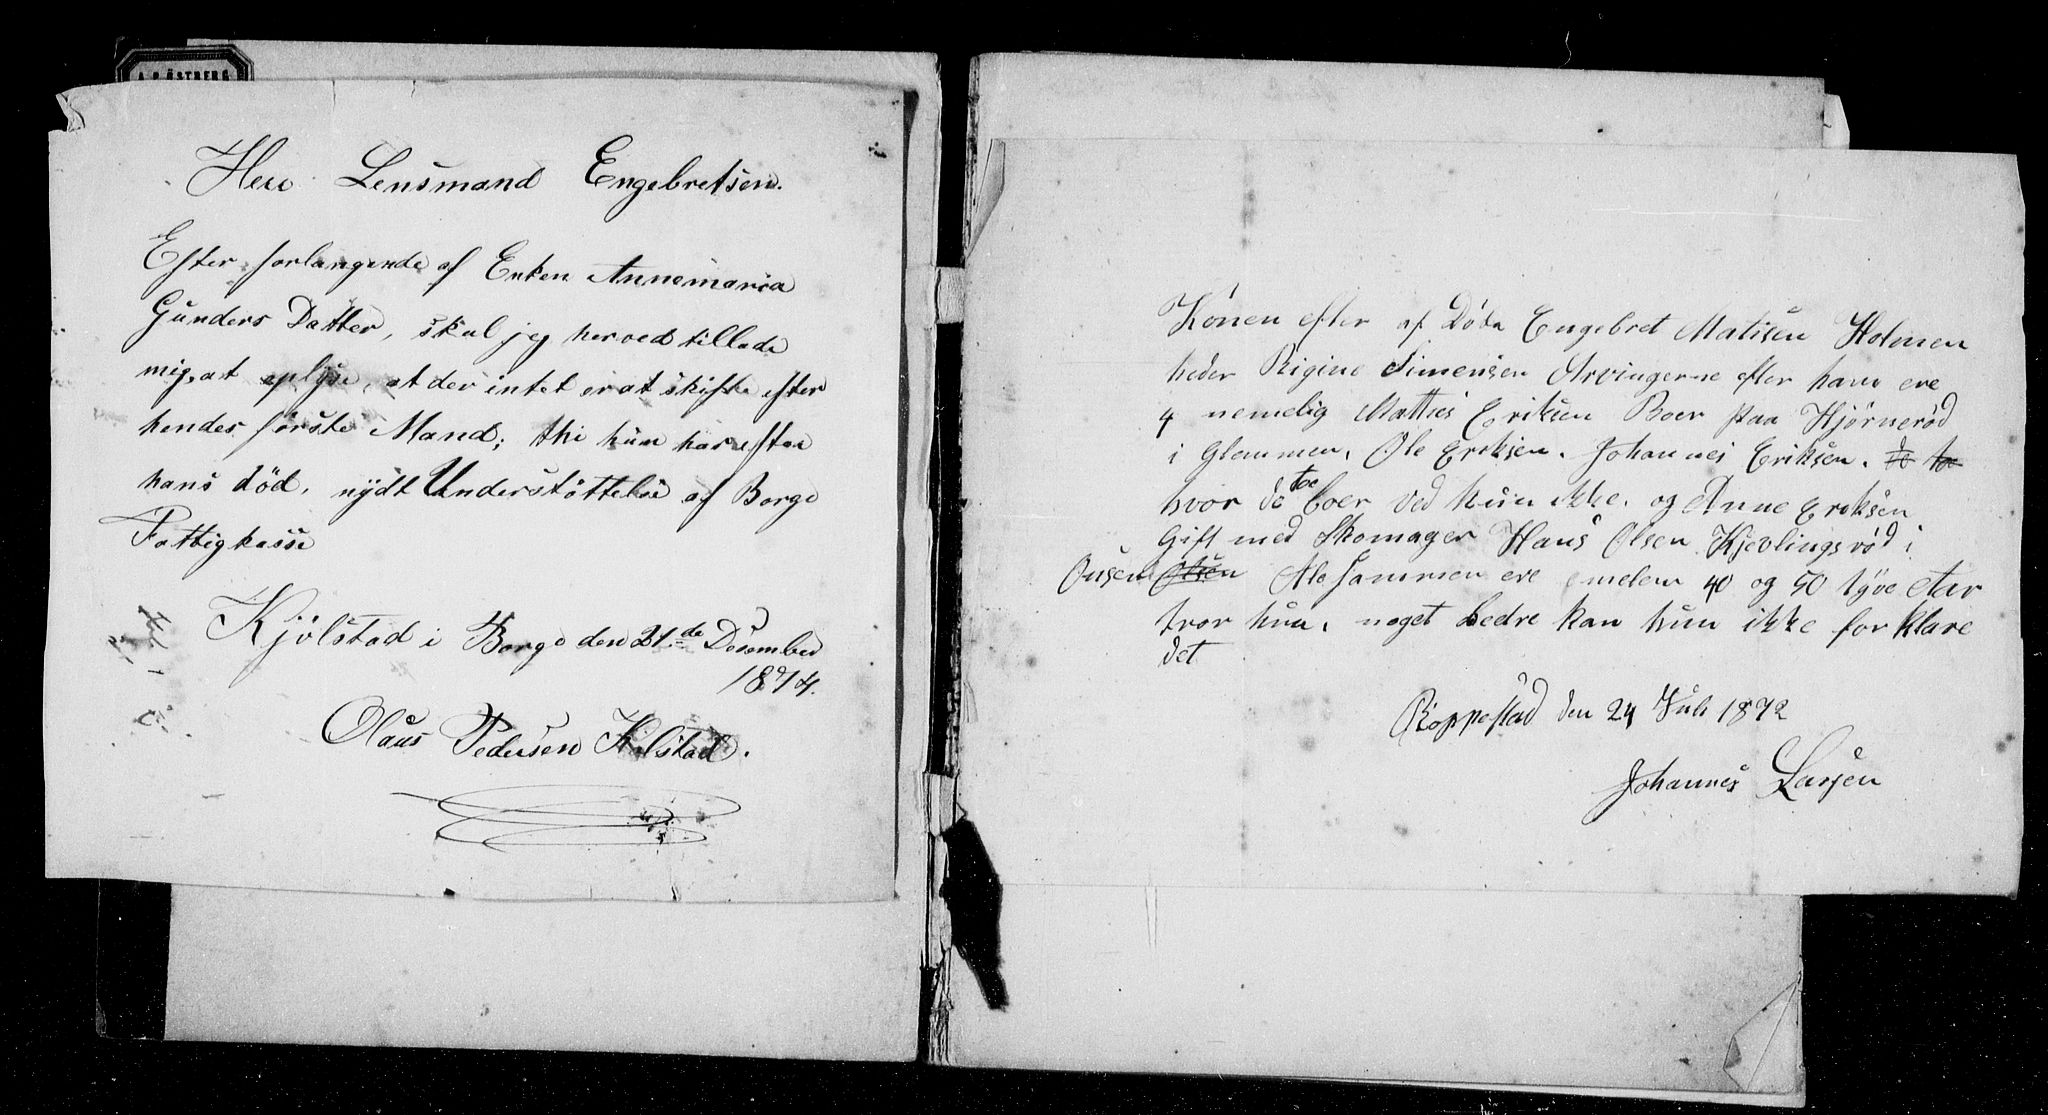 A. P. ÖSTBERG
Herr Lensmand Engebretsen.
Efter forlangende af Enken Annemaria
Gunders Datter, skal jeg herved tillade
mig, at oplyse, at der intet er at skifte efter
hendes første Mand; thi hun har efter
hans død, nydt Understøttelse af Borge
Fattigkasse
Kjölstad i Borge den 21de Desember
1874.
Olaus Pedersen Kolstad.
Konen efter af Döda Engebret Matisen Holmen
heder Rigine Simensen Arvingerne efter ham ere
4 nemelig Mattis Eriksen Boer paa Hjørnerød
i Glemmen, Ole Eriksen. Johannes Eriksen. de to
hvor de toe boer ved hun ikke. og Anne Eriksen
Gift med Skomager Hans Olsen Kjevlingsrød i
Onsen Olsen Alesammen ere melem 40 og 50 tyve Aar
tror hun, noget bedre kan hun ikke forklare
det
Roppestad den 24 Juli 1872
Johannes Larsen